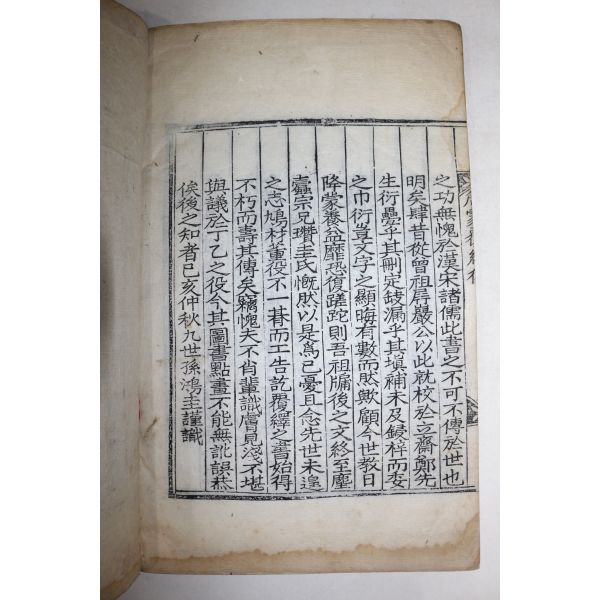 之功無愧於漢宋諸儒此書之不可不傳於世也
明矣肆昔從曾祖尋巖公以此就校於立齋鄭先
生衍疊乎其刪定漏乎其塡補未及鋟梓而委
之巾衍豈文字之顯晦有數而肰歟顧今世敎日
降蒙養益靡恐復蹉跎則吾祖牖後之文終至塵
蠹宗兄瓚圭氏慨然以是爲己憂且念先世未遑
之志鳩材董役不一朞而工告訖覆繹之書始得
不朽而壽其傳矣竊愧夫不肖輩識膚見淺不堪
與議於丁乙之役今其圖書點畫不能無訛誤恭
俟後之知者己亥仲秋九世孫鴻圭謹識